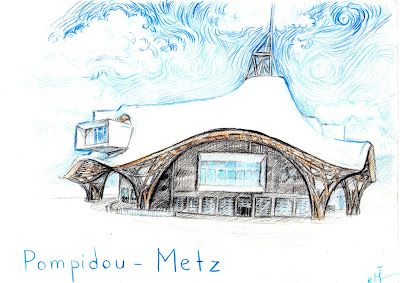 Pompidou - Metz